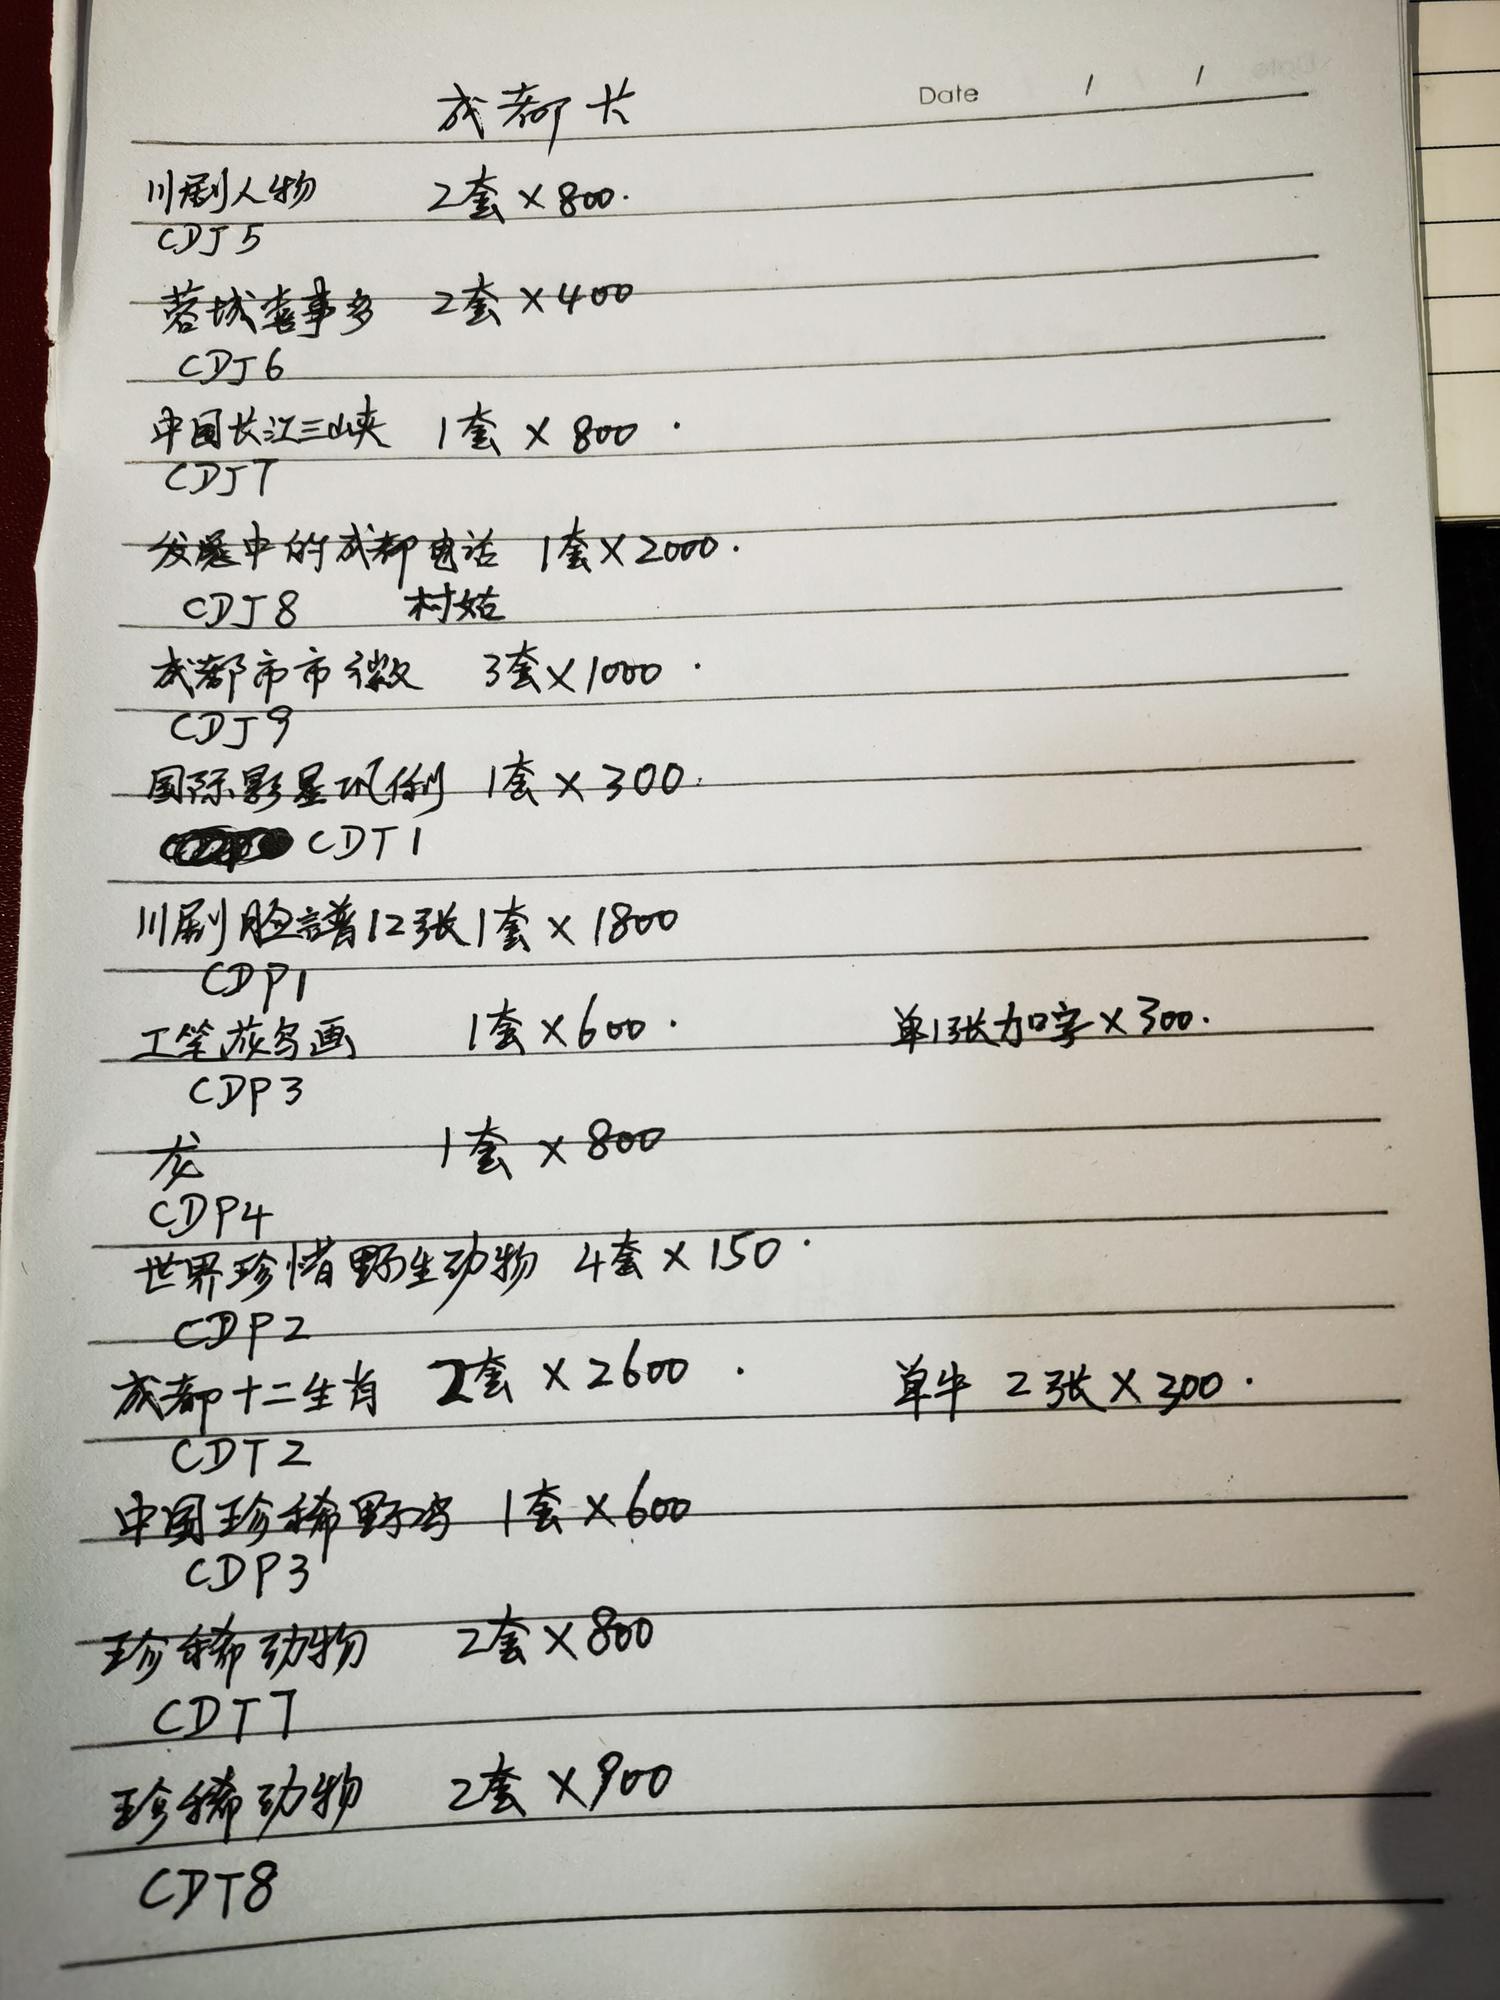 成都卡
Date / /
川剧人物 2套×800.
CDJ5
蓉城喜事多 2套×400
CDJ6
中国长江三峡 1套×800.
CDJ7
发展中的成都电话 1套×2000.
CDJ8 村姑
成都市市徽 3套×1000.
CDJ9
国际影星巩俐 1套×300.
CDT1
川剧脸譜12张1套×1800
CDP1
工笔花鸟画 1套×600. 单1张加字×300.
CDP3
龙 1套×800
CDP4
世界珍惜野生动物 4套×150.
CDP2
成都十二生肖 2套×2600. 单牛 2张×300.
CDT2
中国珍稀野鸟 1套×600
CDP3
珍稀动物 2套×800
CDT7
珍稀动物 2套×900
CDT8